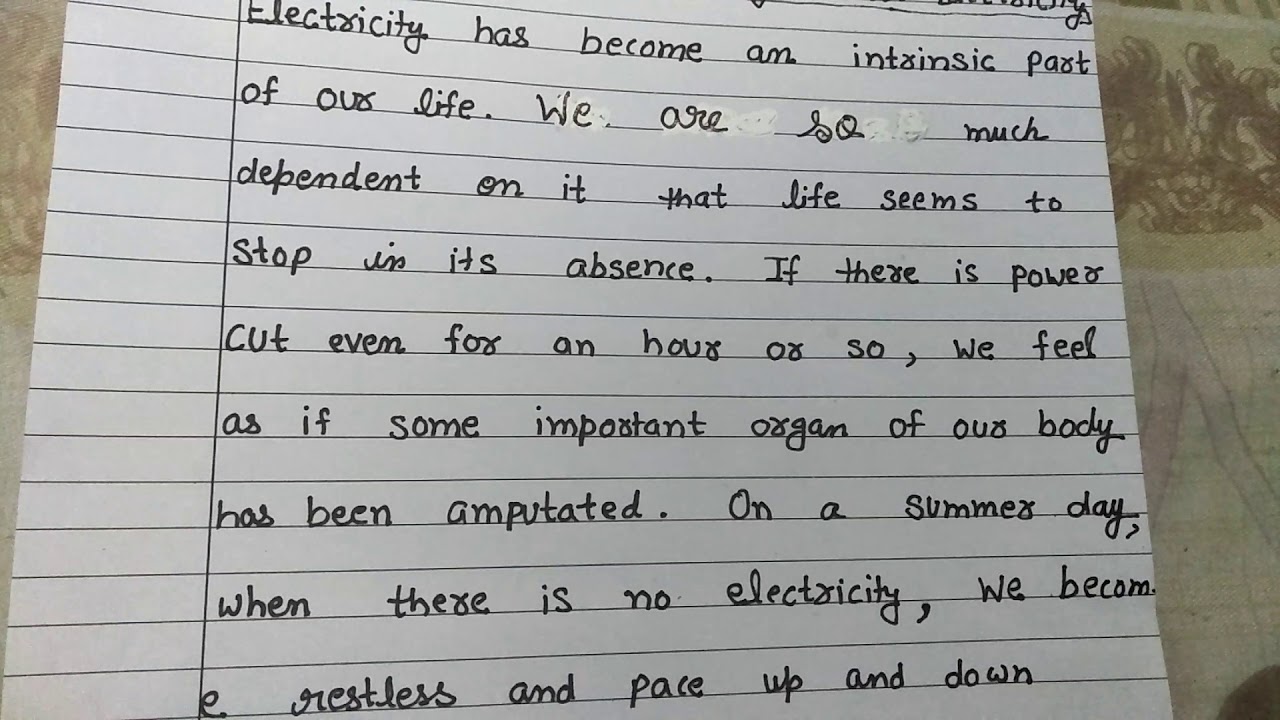 Electricity has become an intrinsic part
of our life. We are so much
dependent on it that life seems to
stop in its absence. If there is power
cut even for an hour or so, we feel
as if some important organ of our body
has been amputated. On a summer day,
when there is no electricity, we becom
e restless and pace up and down